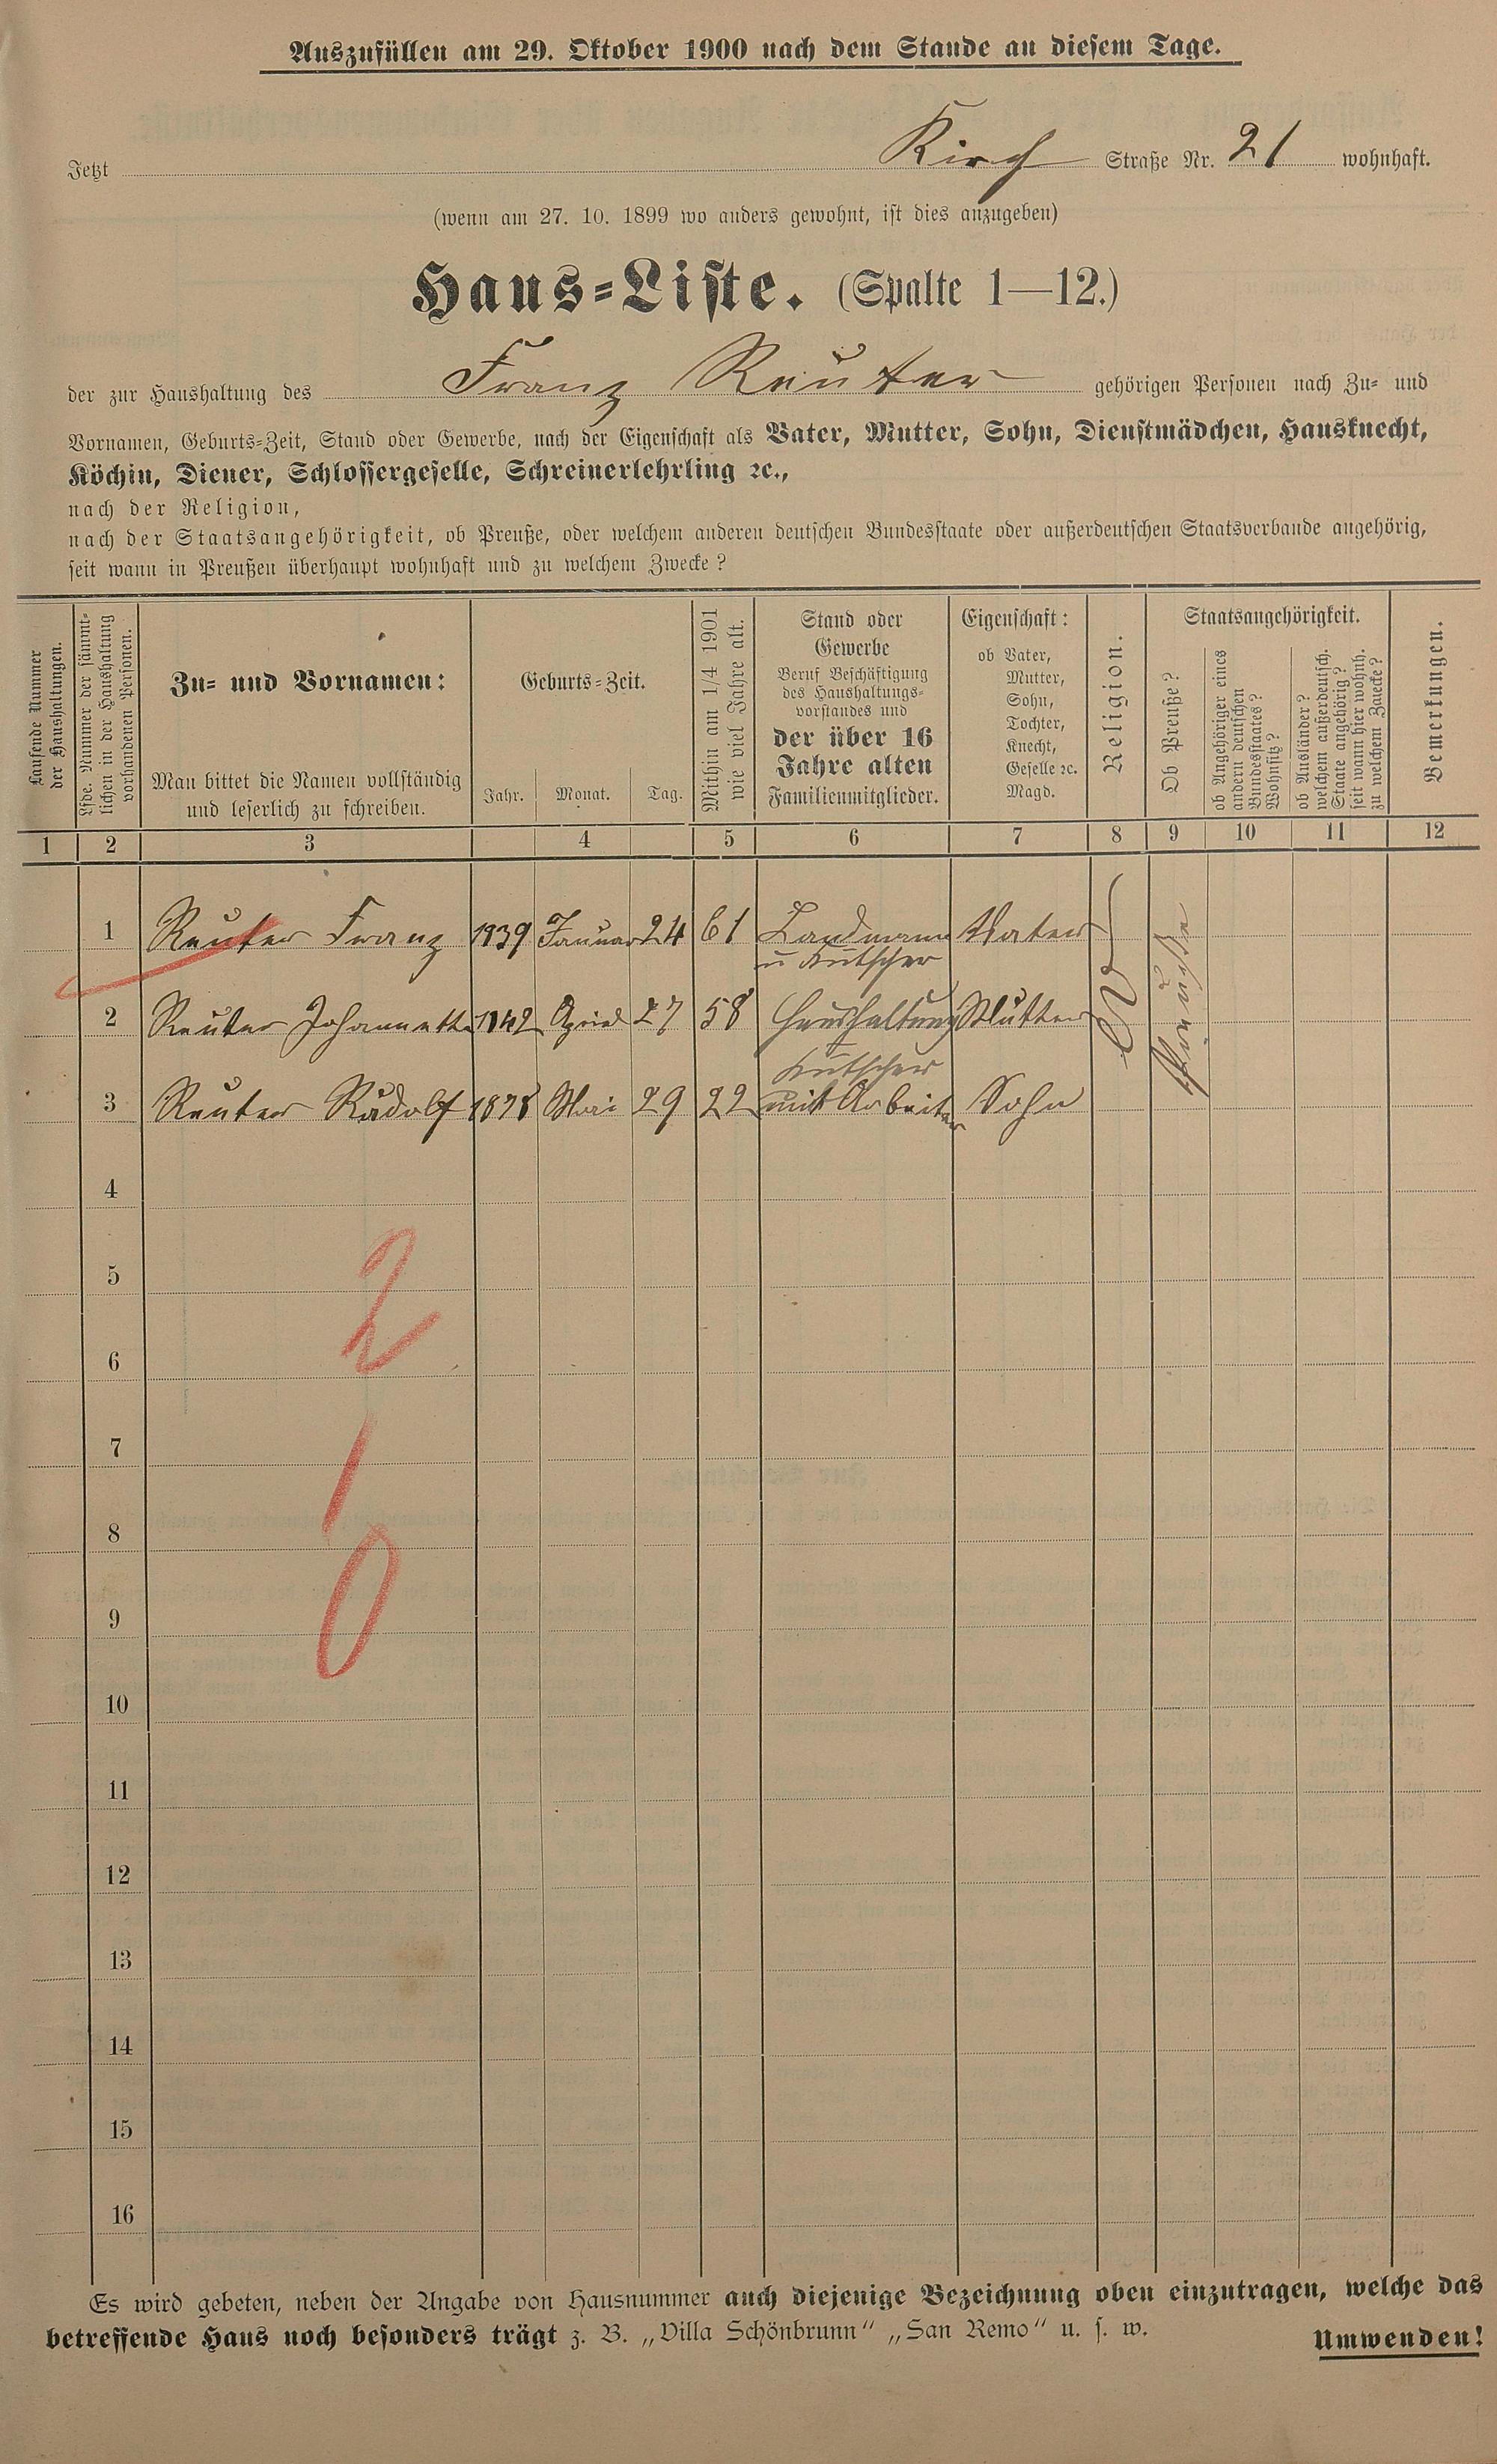 Auszufüllen am 29. Oktober 1900 nach dem Stande an diesem Tage.
Jetzt Kirch Straße Nr. 21 wohnhaft.
(wenn am 27. 10. 1899 wo anders gewohnt, ist dies anzugeben)
Haus-Liste. (Spalte 1—12.)
der zur Haushaltung des Franz Reuter gehörigen Personen nach Zu- und
Vornamen, Geburts-Zeit, Stand oder Gewerbe, nach der Eigenschaft als Vater, Mutter, Sohn, Dienstmädchen, Hausknecht,
Köchin, Diener, Schlossergeselle, Schreinerlehrling ꝛc.,
nach der Religion,
nach der Staatsangehörigkeit, ob Preuße, oder welchem anderen deutschen Bundesstaate oder außerdeutschen Staatsverbande angehörig,
seit wann in Preußen überhaupt wohnhaft und zu welchem Zwecke?
Laufende Nummer
der Haushaltungen.
Lfde. Nummer der sämmt-
lichen in der Haushaltung
vorhandenen Personen.
Zu- und Vornamen:
Man bittet die Namen vollständig
und leserlich zu schreiben.
Geburts-Zeit.
Jahr. Monat. Tag.
Mithin am 1/4 1901
wie viel Jahre alt.
Stand oder
Gewerbe
Beruf Beschäftigung
des Haushaltungs-
vorstandes und
der über 16
Jahre alten
Familienmitglieder.
Eigenschaft:
ob Vater,
Mutter,
Sohn,
Tochter,
Knecht,
Geselle ꝛc.
Magd.
Religion.
Staatsangehörigkeit.
Ob Preuße?
ob Angehöriger eines
andern deutschen
Bundesstaates?
Wohnsitz?
ob Ausländer?
welchem außerdeutsch.
Staate angehörig?
seit wann hier wohnh.
zu welchem Zwecke?
Bemerkungen.
1 2 3 4 5 6 7 8 9 10 11 12
1 Reuter Franz 1939 Januar 24 61 Landmann Vater
u Kutscher
2 Reuter Johannette 1842 April 27 58 Haushaltung Mutter
Kutscher
3 Reuter Rudolf 1878 Mai 29 22 mit Arbeiter Sohn
ev
Preuße
4
5
2
6
7
1
8
9
0
10
11
12
13
14
15
16
Es wird gebeten, neben der Angabe von Hausnummer auch diejenige Bezeichnung oben einzutragen, welche das
betreffende Haus noch besonders trägt z. B. „Villa Schönbrunn“ „San Remo“ u. s. w.
Umwenden!